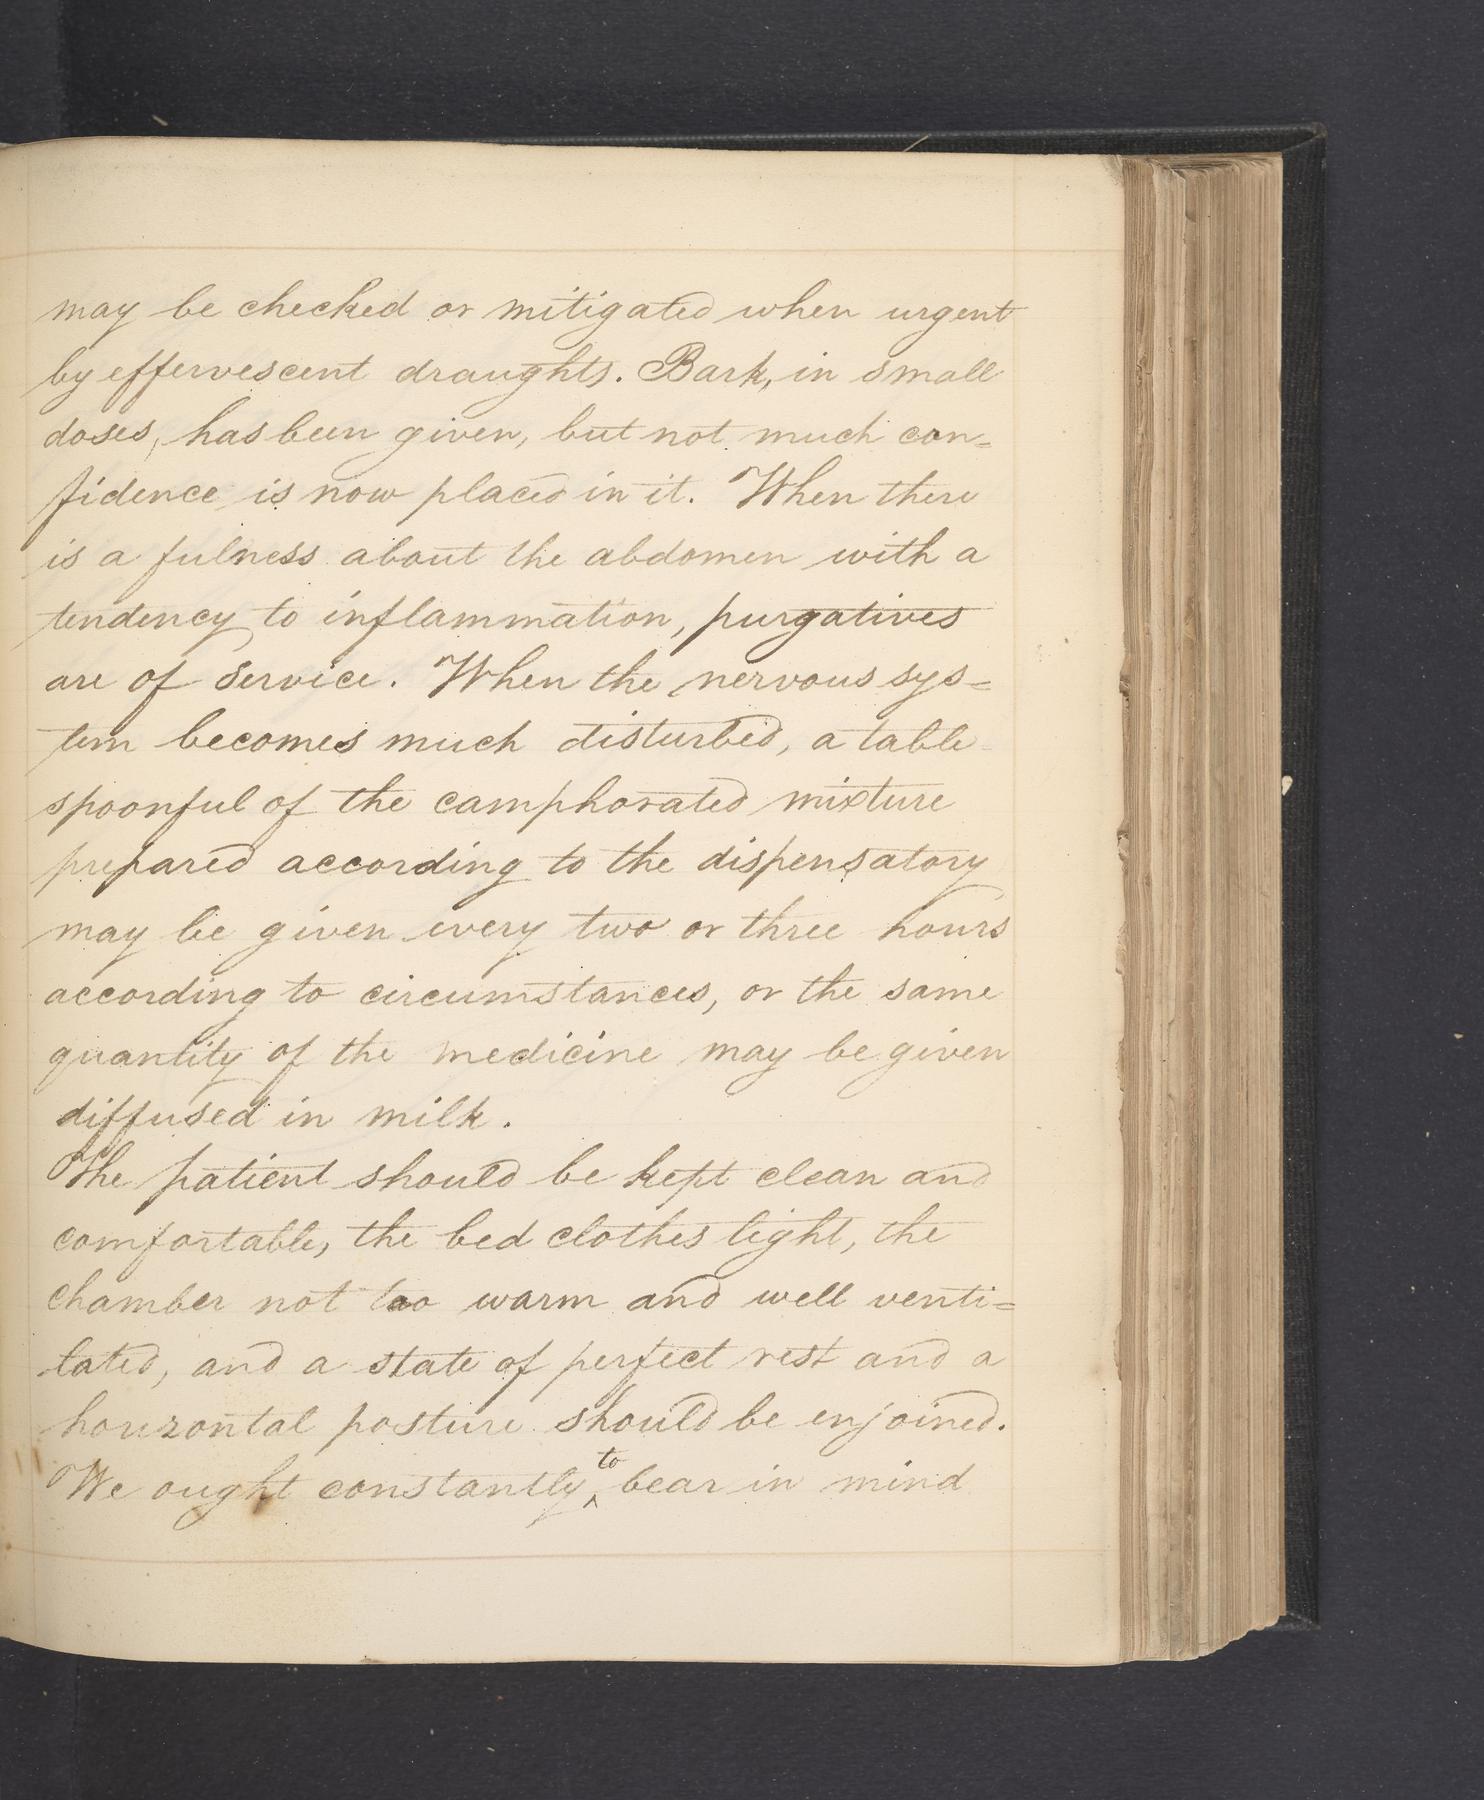 may be checked or mitigated when urgent
by effervescent draughts. Bark, in small
doses, has been given, but not much con=
fidence is now placed in it. When there
is a fulness about the abdomen with a
tendency to inflammation, purgatives
are of service. When the nervous sys=
tem becomes much disturbed, a table
spoonful of the camphorated mixture
prepared according to the dispensatory
may be given every two or three hours
according to circumstances, or the same
quantity of the medicine may be given
diffused in milk.
The patient should be kept clean and
comfortable, the bed clothes light, the
chamber not too warm and well venti=
lated, and a state of perfect rest and a
horizontal posture should be enjoined.
We ought constantly to bear in mind